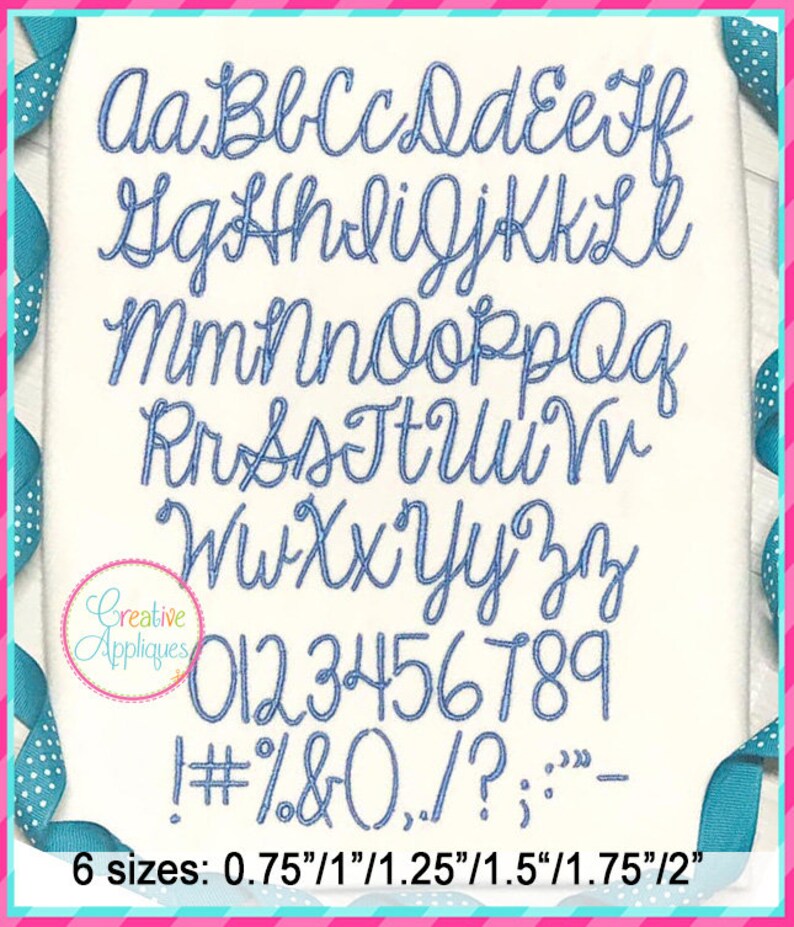 AaBbCcDdEeFf
GgHhIiJjKkLl
MmNnOoPpQq
RrSsTtUuVv
WwXxYyZz
Creative
Appliques
0123456789
!#%&(),./?;:'"-
6 sizes: 0.75”/1”/1.25”/1.5“/1.75”/2”